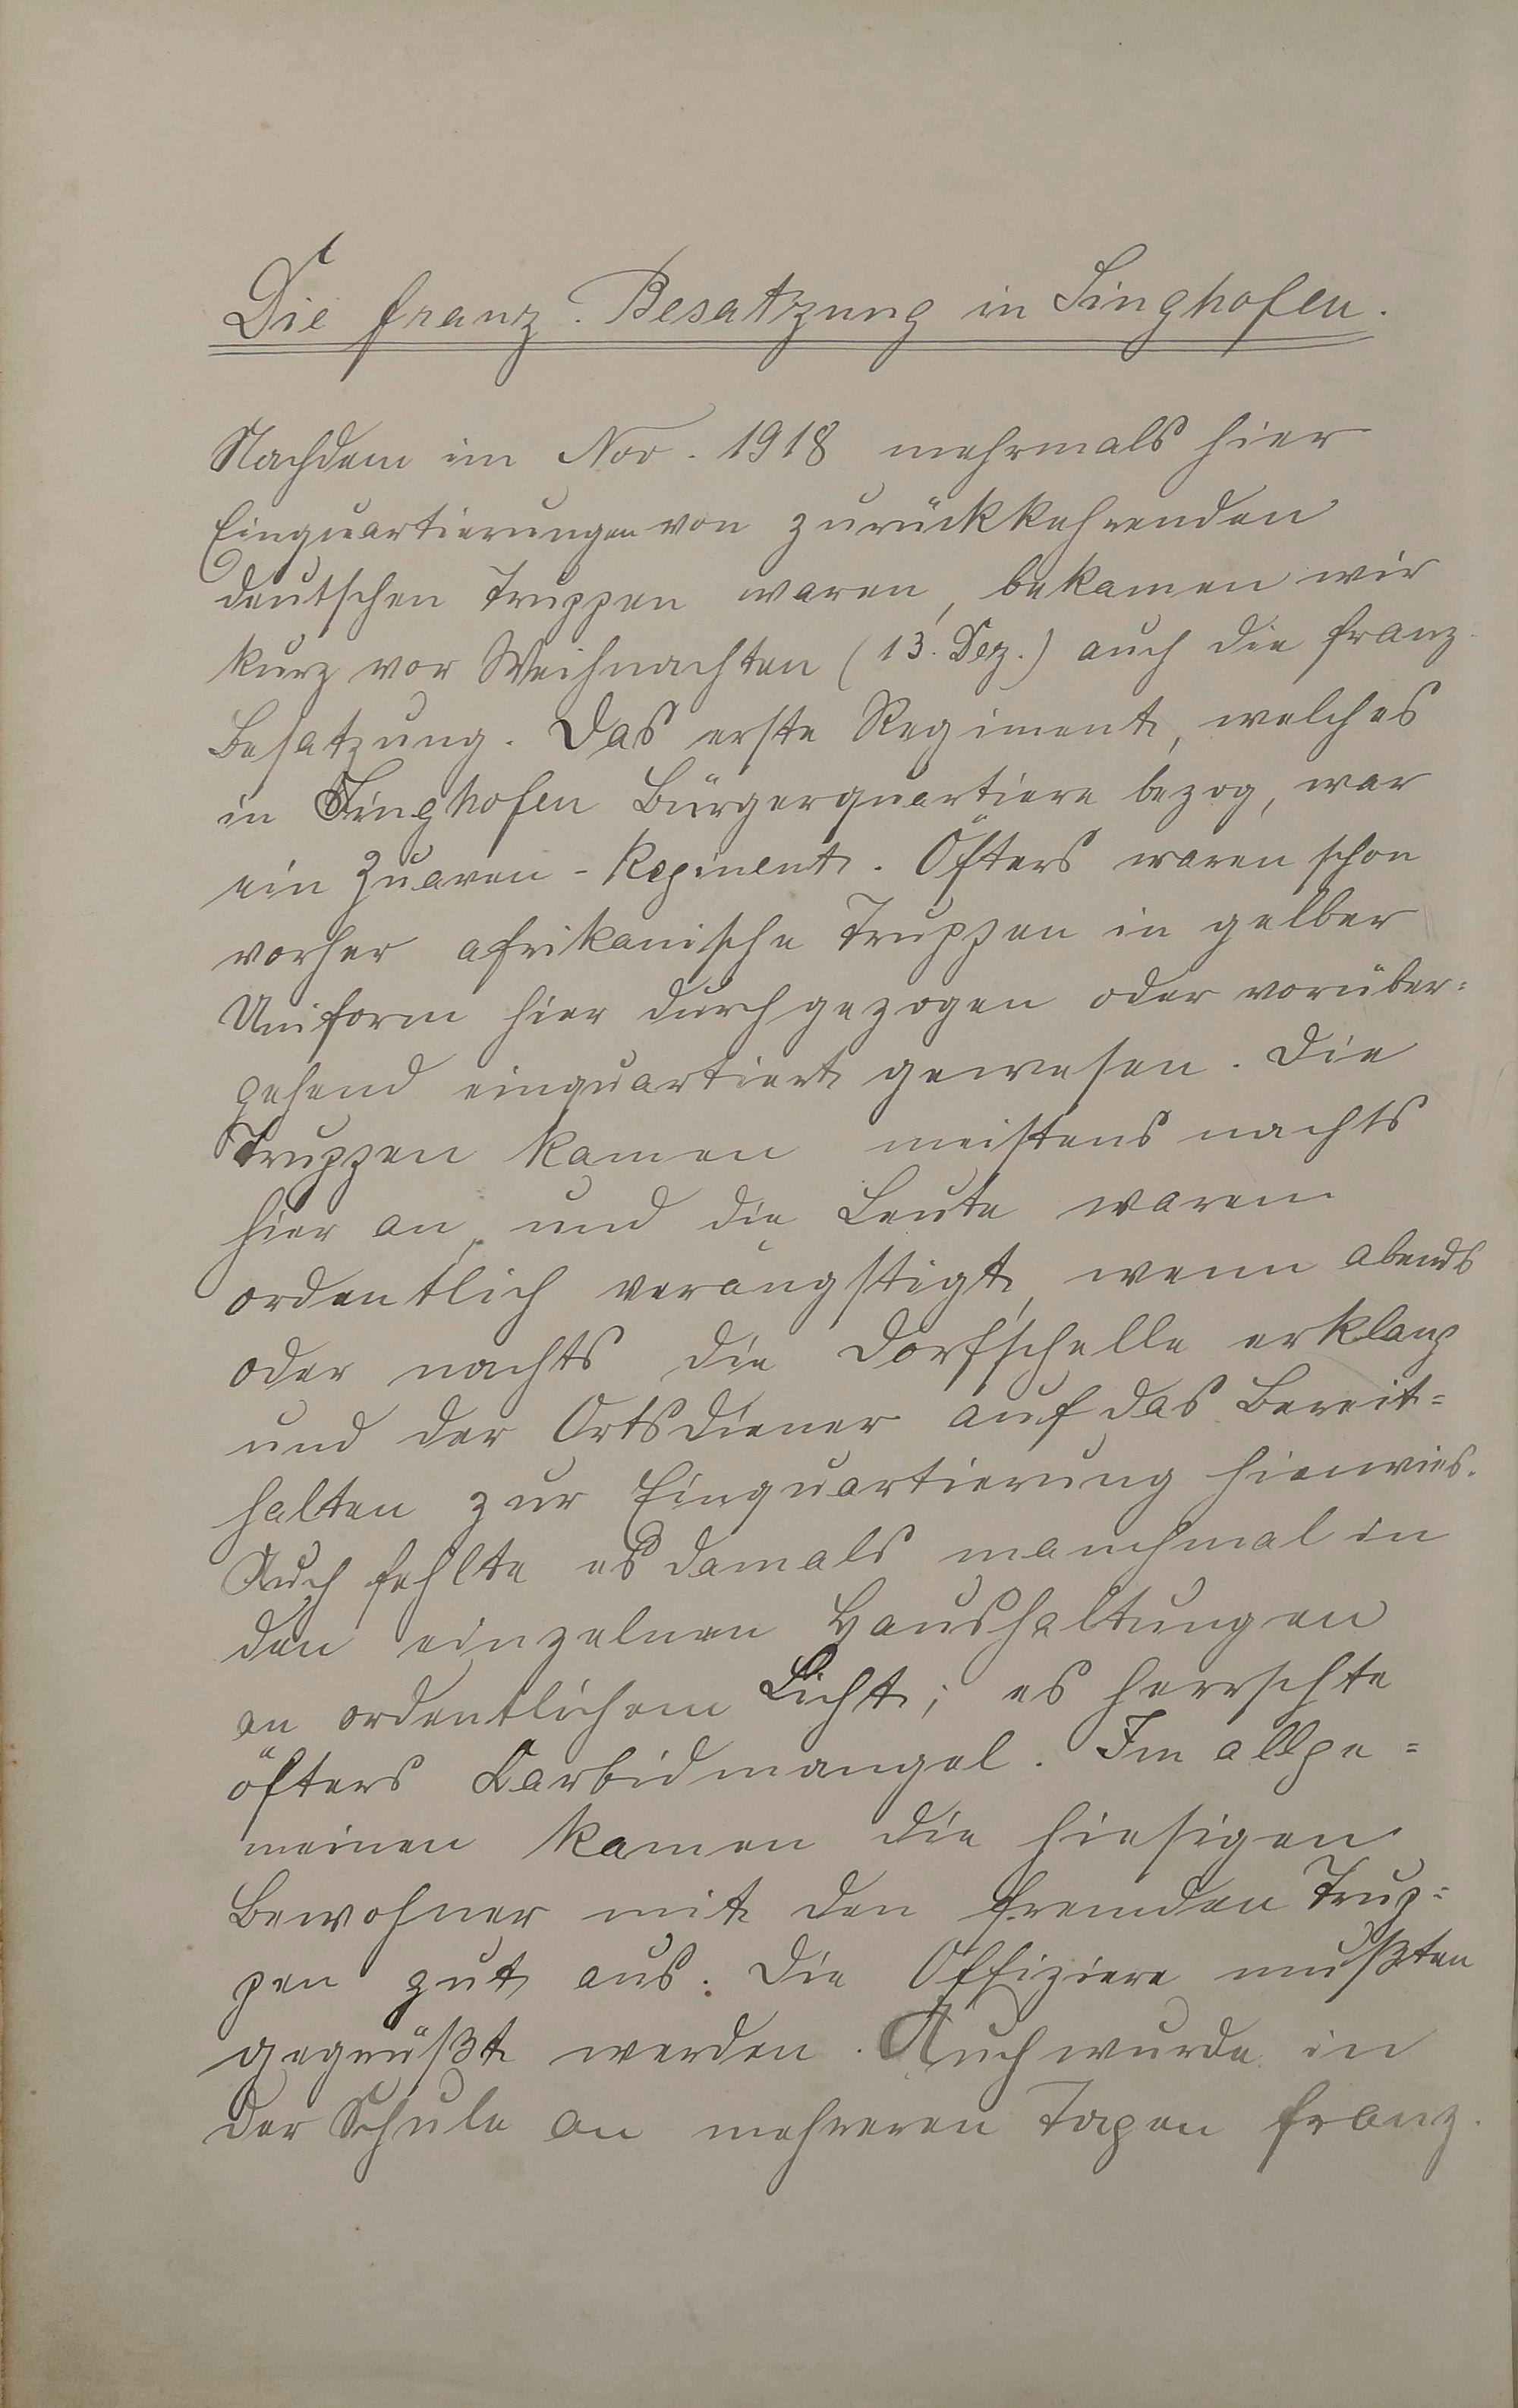 Die franz. Besatzung in Singhofen.
Nachdem im Nov. 1918 mehrmals hier
Einquartierungen von zurückkehrenden
deutschen Truppen waren, bekamen wir
kurz vor Weihnachten (13. Dez.) auch die franz.
Besatzung. Das erste Regiment, welches
in Singhofen Bürgerquartiere bezog, war
ein Zuaven-Regiment. Öfters waren schon
vorher afrikanische Truppen in gelber
Uniform hier durchgezogen oder vorüber=
gehend einquartiert gewesen. Die
Truppen kamen meistens nachts
hier an, und die Leute waren
ordentlich verängstigt, wenn abends
oder nachts die Dorfschelle erklang
und der Ortsdiener auf das Bereit=
halten zur Einquartierung hienwies.
Auch fehlte es damals manchmal in
den einzelnen Haushaltungen
an ordentlichem Licht; es herrschte
öfters Karbidmangel. Im allge=
meinen kamen die hiesigen
Bewohner mit den fremden Trup=
pen gut aus. Die Offiziere mußten
gegrüßt werden. Auch wurde in
der Schule an mehreren Tagen franz.